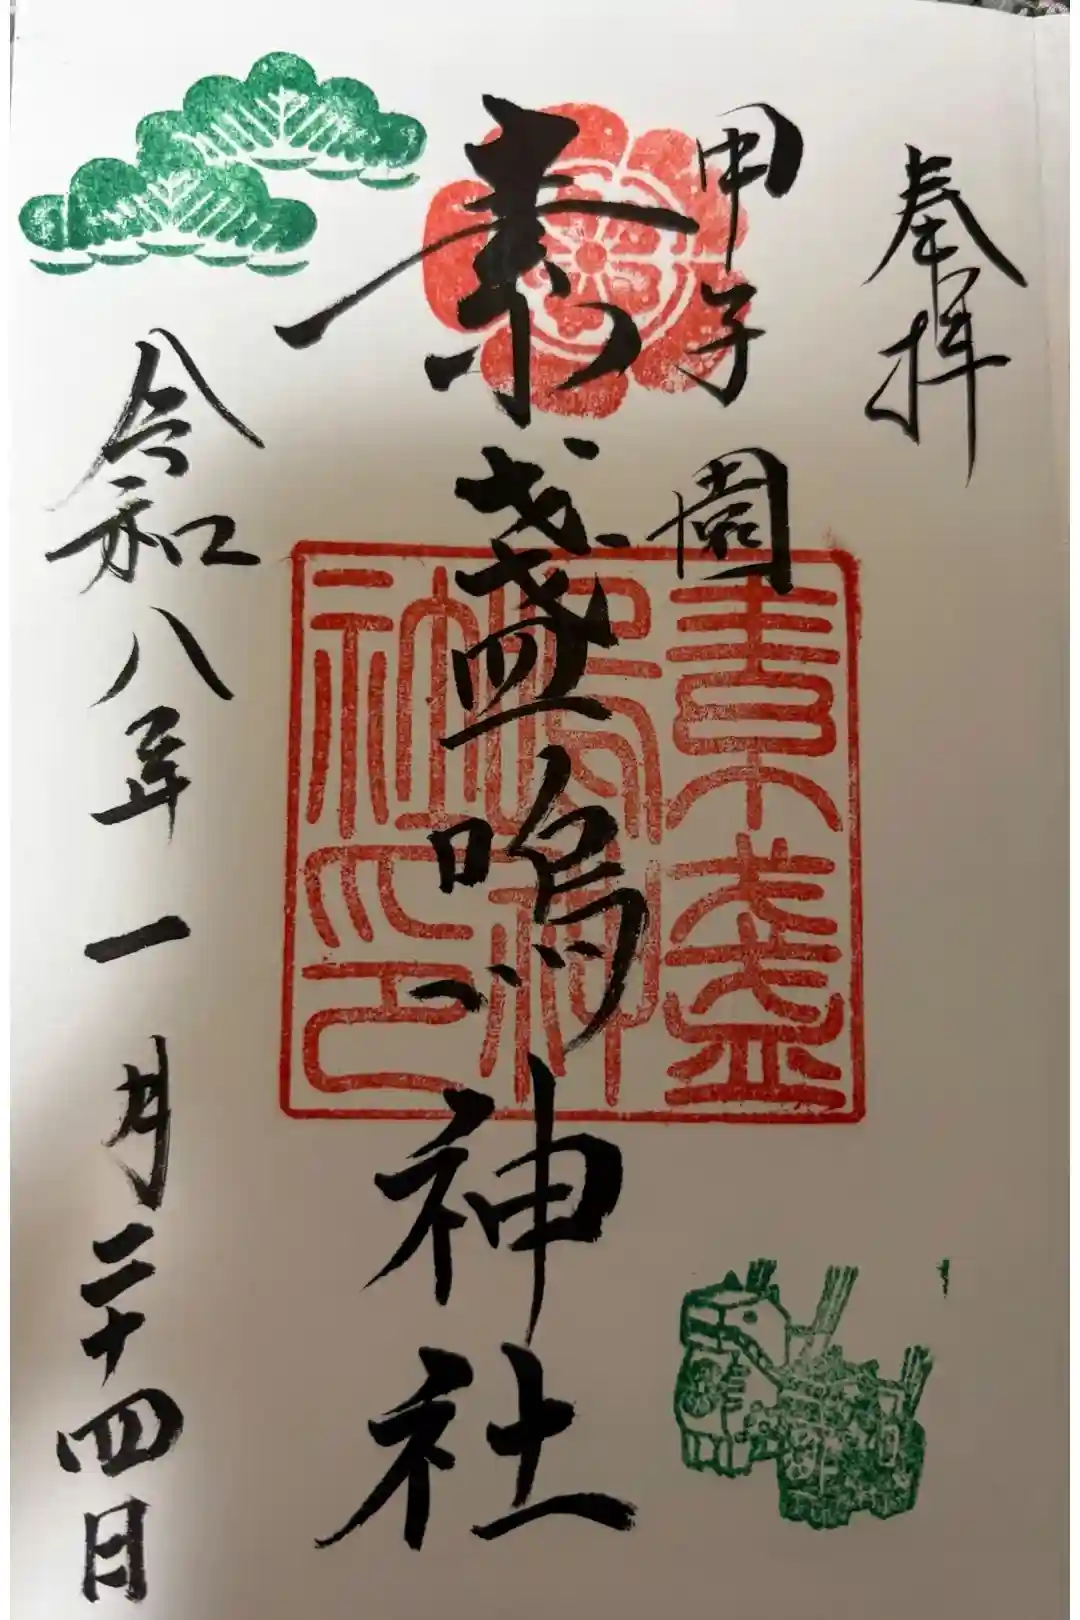 奉拝
甲子園
素盞嗚神社
令和八年一月二十四日
素盞
嗚神
社印